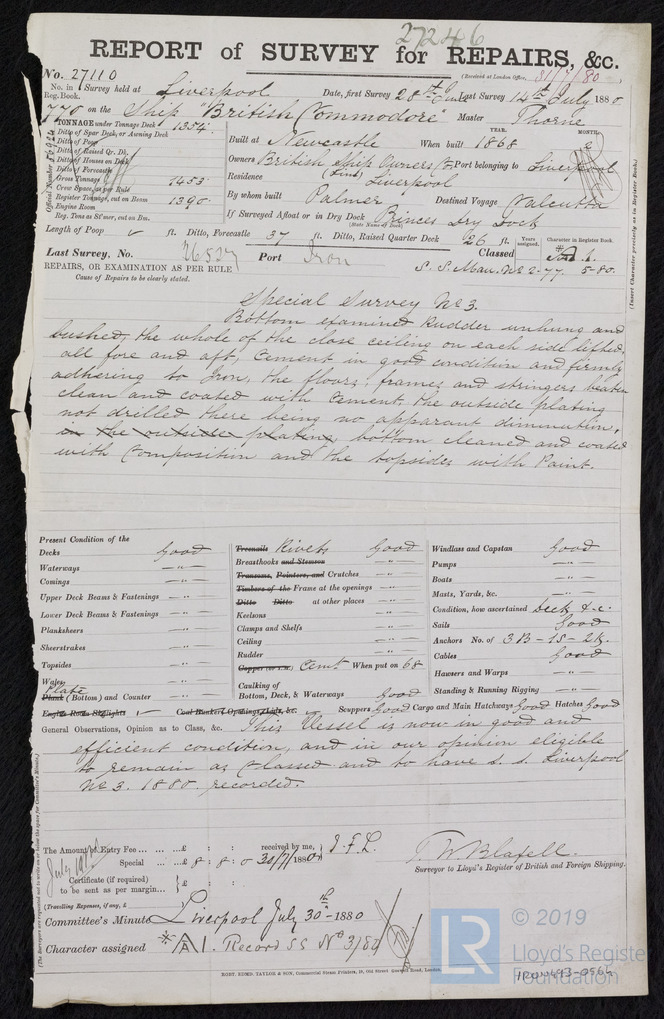 27246
REPORT of SURVEY for REPAIRS, &c.
No. 27110
(Received at London Office, 31/7/80
No. in Reg. Book. Survey held at Liverpool Date, first Survey 28th June Last Survey 14th July 1880
770 on the Ship "British Commodore" Master Thorne
TONNAGE under Tonnage Deck 1354
Ditto of Spar Deck, or Awning Deck
Ditto of Poop
Ditto of Raised Qr. Dk.
Ditto of Houses on Deck
Ditto of Forecastle
Gross Tonnage 1453
Crew Space, as per Rule
Register Tonnage, cut on Beam 1390
Engine Room
Reg. Tons as St'mer, cut on Bm.
Official Number
YEAR. MONTH.
Built at Newcastle When built 1868
Owners British Ship Owners Co (Lim) Port belonging to Liverpool
Residence Liverpool
By whom built Palmer Destined Voyage Calcutta
If Surveyed Afloat or in Dry Dock Princes Dry Dock
(State Name of Dock)
Length of Poop ft. Ditto, Forecastle 37 ft. Ditto, Raised Quarter Deck 26 ft. Years assigned. Character in Register Book.
Last Survey, No. 26527 Port Iron Classed A 1.
S. S. Mau. No 2-77 5-80.
REPAIRS, OR EXAMINATION AS PER RULE
Cause of Repairs to be clearly stated.
(Insert Character precisely as in Register Book.)
Special Survey No 3.
Bottom examined Rudder unhung and
bushed, the whole of the close ceiling on each side lifted
all fore and aft, Cement in good condition and firmly
adhering to Iron, the floors, frames and stringers beaten
clean and coated with Cement, the outside plating
not drilled there being no apparent diminution,
in the outside plating, bottom cleaned and coated
with Composition and the topsides with Paint.
Present Condition of the
Decks Good
Waterways -"-
Comings -"-
Upper Deck Beams & Fastenings -"-
Lower Deck Beams & Fastenings -"-
Planksheers -"-
Sheerstrakes -"-
Topsides -"-
Wales -"-
Plate
Plank (Bottom) and Counter -"-
Engine Room Skylights
Treenails Rivets Good
Breasthooks and Stemson -"-
Transoms, Pointers, and Crutches -"-
Timbers of the Frame at the openings -"-
Ditto Ditto at other places -"-
Keelsons -"-
Clamps and Shelfs -"-
Ceiling -"-
Rudder -"-
Copper (or Y.M.) Cemt When put on 68
Caulking of
Bottom, Deck, & Waterways Good
Coal Bunker Openings, Lids, &c.
Windlass and Capstan Good
Pumps -"-
Boats -"-
Masts, Yards, &c. -"-
Condition, how ascertained Deck &c.
Sails Good
Anchors No. of 3B-1S-2K.
Cables Good
Hawsers and Warps -"-
Standing & Running Rigging -"-
Scuppers Good Cargo and Main Hatchways Good Hatches Good
General Observations, Opinion as to Class, &c. This Vessel is now in good and
efficient condition, and in our opinion eligible
to remain as Classed and to have s. s. Liverpool
No 3. 1880. recorded.
The Amount of Entry Fee ... ... ...£ : : received by me, J. F. L.
Special ... ...£ 8 : 8 : 0 30/7/1880
Certificate (if required)
to be sent as per margin... }£ : :
(Travelling Expenses, if any, £
T. W. Blabell.
Surveyor to Lloyd's Register of British and Foreign Shipping.
Committee's Minute Liverpool July 30th 1880
Character assigned A1. Record SS No 3/80
ROBT. EDMD. TAYLOR & SON, Commercial Steam Printers, 19, Old Street Goswell Road, London.
LR
© 2019
Lloyd's Register
Foundation
IRON493-0564